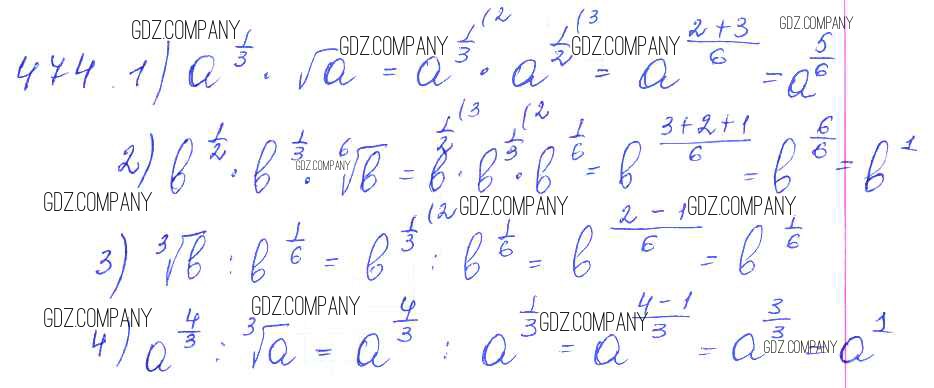 GDZ.COMPANY GDZ.COMPANY GDZ.COMPANY GDZ.COMPANY
474. 1) a^(1/3) · √a = a^(1/3 (2) · a^(1/2 (3) = a^((2+3)/6) = a^(5/6)
2) b^(1/2) · b^(1/3) · ⁶√b = b^(1/2 (3) · b^(1/3 (2) · b^(1/6) = b^((3+2+1)/6) = b^(6/6) = b^1
GDZ.COMPANY
GDZ.COMPANY GDZ.COMPANY GDZ.COMPANY
3) ³√b : b^(1/6) = b^(1/3 (2) : b^(1/6) = b^((2-1)/6) = b^(1/6)
GDZ.COMPANY GDZ.COMPANY GDZ.COMPANY
4) a^(4/3) : ³√a = a^(4/3) : a^(1/3) = a^((4-1)/3) = a^(3/3) = a^1
GDZ.COMPANY